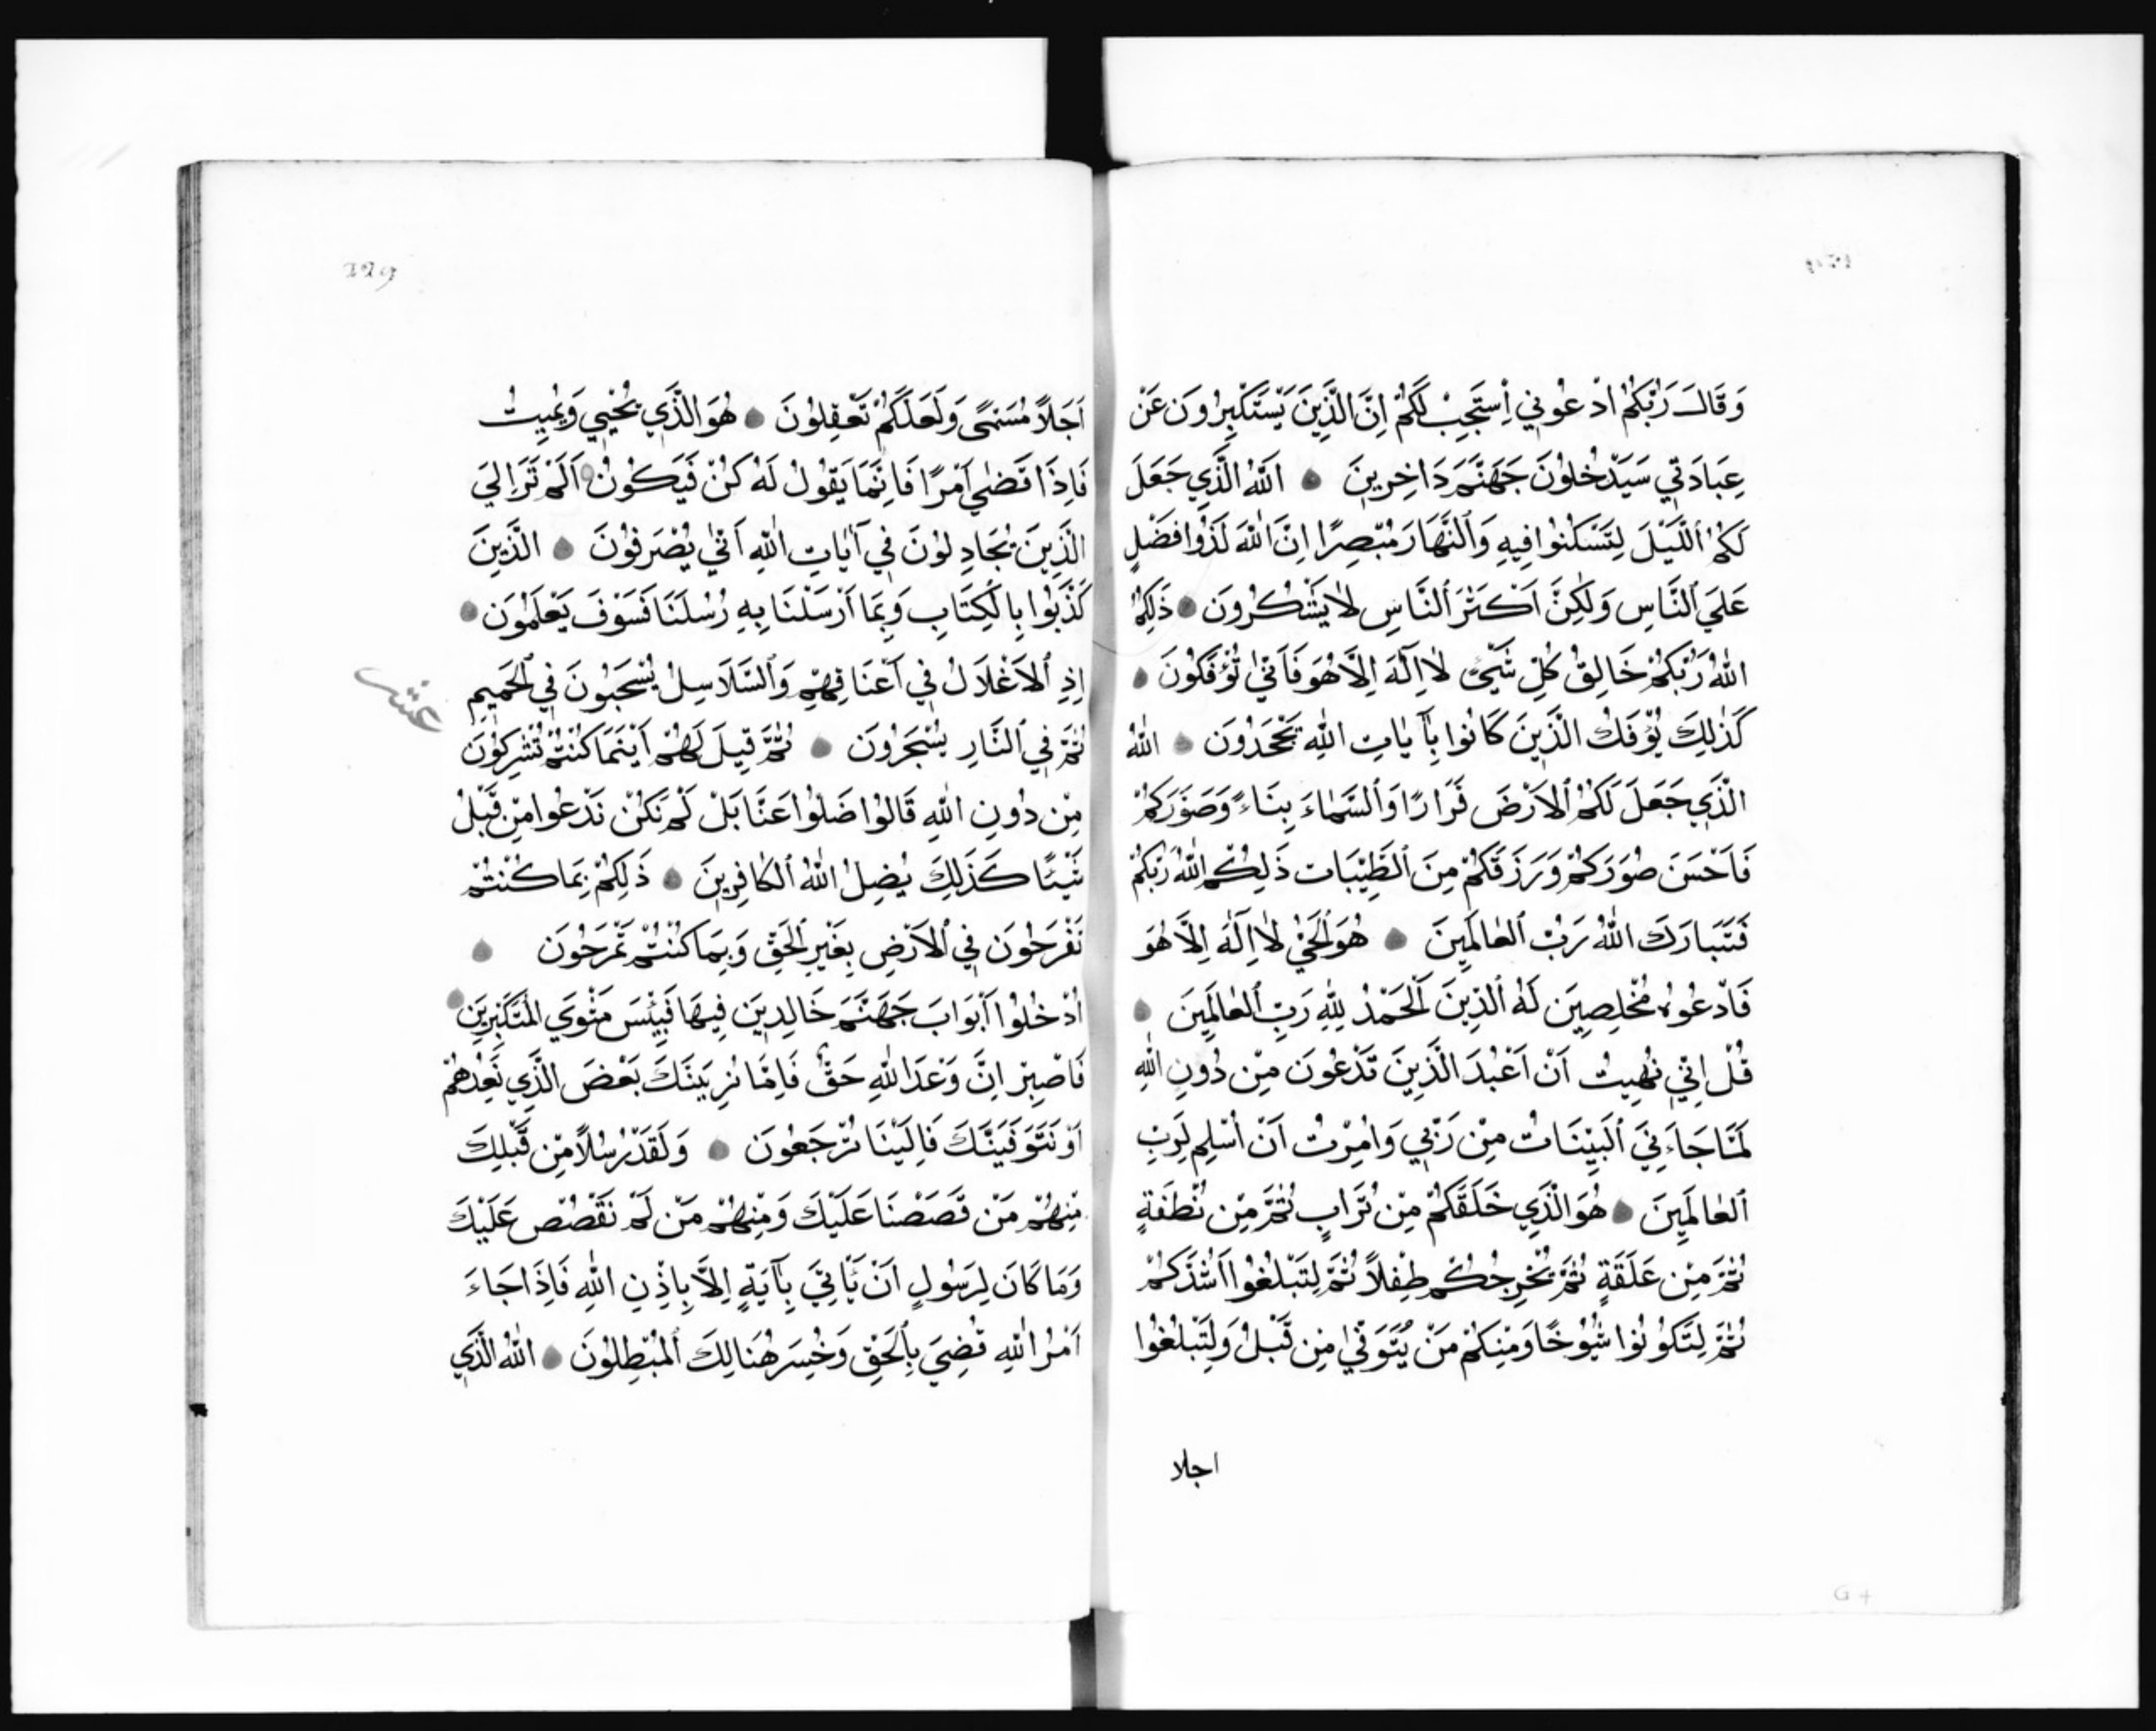 وَقَالَ رَبُّكُمُ ادْعُونِي أَسْتَجِبْ لَكُمْ اِنَّ الَّذِينَ يَسْتَكْبِرُونَ عَنْ
عِبَادَتِي سَيَدْخُلُونَ جَهَنَّمَ دَاخِرِينَ ۝ اَللّٰهُ الَّذِي جَعَلَ
لَكُمُ اللَّيْلَ لِتَسْكُنُوا فِيهِ وَالنَّهَارَ مُبْصِرًا اِنَّ اللّٰهَ لَذُوا فَضْلٍ
عَلَي النَّاسِ وَلٰكِنَّ اَكْثَرَ النَّاسِ لَا يَشْكُرُونَ ۝ ذٰلِكُمُ
اللّٰهُ رَبُّكُمْ خَالِقُ كُلِّ شَيْءٍ لَا اِلٰهَ اِلَّا هُوَ فَاَنّٰي تُؤْفَكُونَ ۝
كَذٰلِكَ يُؤْفَكُ الَّذِينَ كَانُوا بِآيَاتِ اللّٰهِ يَجْحَدُونَ ۝ اَللّٰهُ
الَّذِي جَعَلَ لَكُمُ الْاَرْضَ قَرَارًا وَالسَّمَاءَ بِنَاءً وَصَوَّرَكُمْ
فَاَحْسَنَ صُوَرَكُمْ وَرَزَقَكُمْ مِنَ الطَّيِّبَاتِ ذٰلِكُمُ اللّٰهُ رَبُّكُمْ
فَتَبَارَكَ اللّٰهُ رَبُّ الْعَالَمِينَ ۝ هُوَ الْحَيُّ لَا اِلٰهَ اِلَّا هُوَ
فَادْعُوهُ مُخْلِصِينَ لَهُ الدِّينَ اَلْحَمْدُ لِلّٰهِ رَبِّ الْعَالَمِينَ ۝
قُلْ اِنِّي نُهِيتُ اَنْ اَعْبُدَ الَّذِينَ تَدْعُونَ مِنْ دُونِ اللّٰهِ
لَمَّا جَاءَنِيَ الْبَيِّنَاتُ مِنْ رَبِّي وَاُمِرْتُ اَنْ اُسْلِمَ لِرَبِّ
الْعَالَمِينَ ۝ هُوَ الَّذِي خَلَقَكُمْ مِنْ تُرَابٍ ثُمَّ مِنْ نُطْفَةٍ
ثُمَّ مِنْ عَلَقَةٍ ثُمَّ يُخْرِجُكُمْ طِفْلًا ثُمَّ لِتَبْلُغُوا اَشُدَّكُمْ
ثُمَّ لِتَكُونُوا شُيُوخًا وَمِنْكُمْ مَنْ يُتَوَفّٰي مِنْ قَبْلُ وَلِتَبْلُغُوا
اجلا
G 4
229
اَجَلًا مُسَمًّي وَلَعَلَّكُمْ تَعْقِلُونَ ۝ هُوَ الَّذِي يُحْيِي وَيُمِيتُ
فَاِذَا قَضٰي اَمْرًا فَاِنَّمَا يَقُولُ لَهُ كُنْ فَيَكُونُ ۝ اَلَمْ تَرَ اِلَي
الَّذِينَ يُجَادِلُونَ فِي آيَاتِ اللّٰهِ اَنّٰي يُصْرَفُونَ ۝ الَّذِينَ
كَذَّبُوا بِالْكِتَابِ وَبِمَا اَرْسَلْنَا بِهِ رُسُلَنَا فَسَوْفَ يَعْلَمُونَ ۝
اِذِ الْاَغْلَالُ فِي اَعْنَاقِهِمْ وَالسَّلَاسِلُ يُسْحَبُونَ فِي الْحَمِيمِ
عشر
ثُمَّ فِي النَّارِ يُسْجَرُونَ ۝ ثُمَّ قِيلَ لَهُمْ اَيْنَمَا كُنْتُمْ تُشْرِكُونَ
مِنْ دُونِ اللّٰهِ قَالُوا ضَلُّوا عَنَّا بَلْ لَمْ نَكُنْ نَدْعُوا مِنْ قَبْلُ
شَيْئًا كَذٰلِكَ يُضِلُّ اللّٰهُ الْكَافِرِينَ ۝ ذٰلِكُمْ بِمَا كُنْتُمْ
تَفْرَحُونَ فِي الْاَرْضِ بِغَيْرِ الْحَقِّ وَبِمَا كُنْتُمْ تَمْرَحُونَ ۝
اُدْخُلُوا اَبْوَابَ جَهَنَّمَ خَالِدِينَ فِيهَا فَبِئْسَ مَثْوَي الْمُتَكَبِّرِينَ ۝
فَاصْبِرْ اِنَّ وَعْدَ اللّٰهِ حَقٌّ فَاِمَّا نُرِيَنَّكَ بَعْضَ الَّذِي نَعِدُهُمْ
اَوْ نَتَوَفَّيَنَّكَ فَاِلَيْنَا يُرْجَعُونَ ۝ وَلَقَدْ رُسُلًا مِنْ قَبْلِكَ
مِنْهُمْ مَنْ قَصَصْنَا عَلَيْكَ وَمِنْهُمْ مَنْ لَمْ نَقْصُصْ عَلَيْكَ
وَمَا كَانَ لِرَسُولٍ اَنْ يَأْتِيَ بِآيَةٍ اِلَّا بِاِذْنِ اللّٰهِ فَاِذَا جَاءَ
اَمْرُ اللّٰهِ قُضِيَ بِالْحَقِّ وَخَسِرَ هُنَالِكَ الْمُبْطِلُونَ ۝ اَللّٰهُ الَّذِي